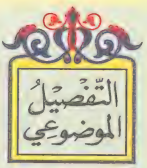 التَّفصِيْلُ
الموضوعِي